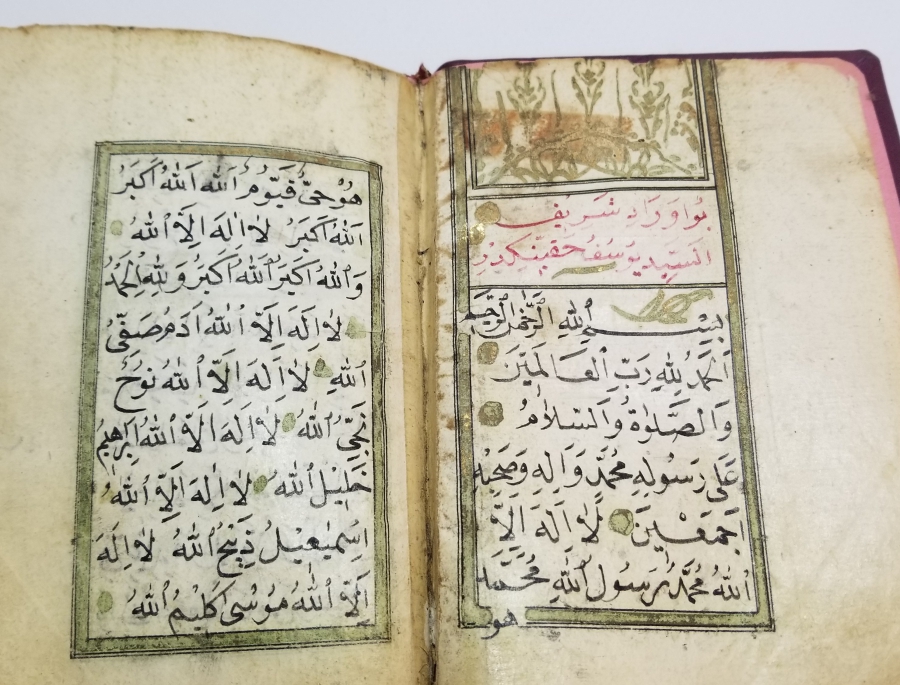 بو اوراد شريف
السيد يوسف حقينكدر
بِسْمِ ٱللهِ الرَّحْمٰنِ الرَّحِيمِ
اَلْحَمْدُ لِلّٰهِ رَبِّ ٱلْعَالَمِينَ
وَالصَّلوٰةُ وَالسَّلَامُ
عَلٰى رَسُولِهِ مُحَمَّدٍ وَاٰلِهِ وَصَحْبِهِ
اَجْمَعِينَ لَا اِلٰهَ اِلَّا
ٱللهُ مُحَمَّدٌ رَسُولُ ٱللهِ مُحَمَّد
هو
هُوَ حَىٌّ قَيُّومٌ اَللهُ اَللهُ اَكْبَرُ
اَللهُ اَكْبَرُ لَا اِلٰهَ اِلَّا ٱللهُ
وَٱللهُ اَكْبَرُ اَللهُ اَكْبَرُ وَلِلّٰهِ ٱلْحَمْدُ
لَا اِلٰهَ اِلَّا ٱللهُ اٰدَمُ صَفِىُّ
ٱللهِ لَا اِلٰهَ اِلَّا ٱللهُ نُوحٌ
نَجِىُّ ٱللهِ لَا اِلٰهَ اِلَّا ٱللهُ اِبْرٰهِيمُ
خَلِيلُ ٱللهِ لَا اِلٰهَ اِلَّا ٱللهُ
اِسْمٰعِيلُ ذَبِيحُ ٱللهِ لَا اِلٰهَ
اِلَّا ٱللهُ مُوسٰى كَلِيمُ ٱللهِ